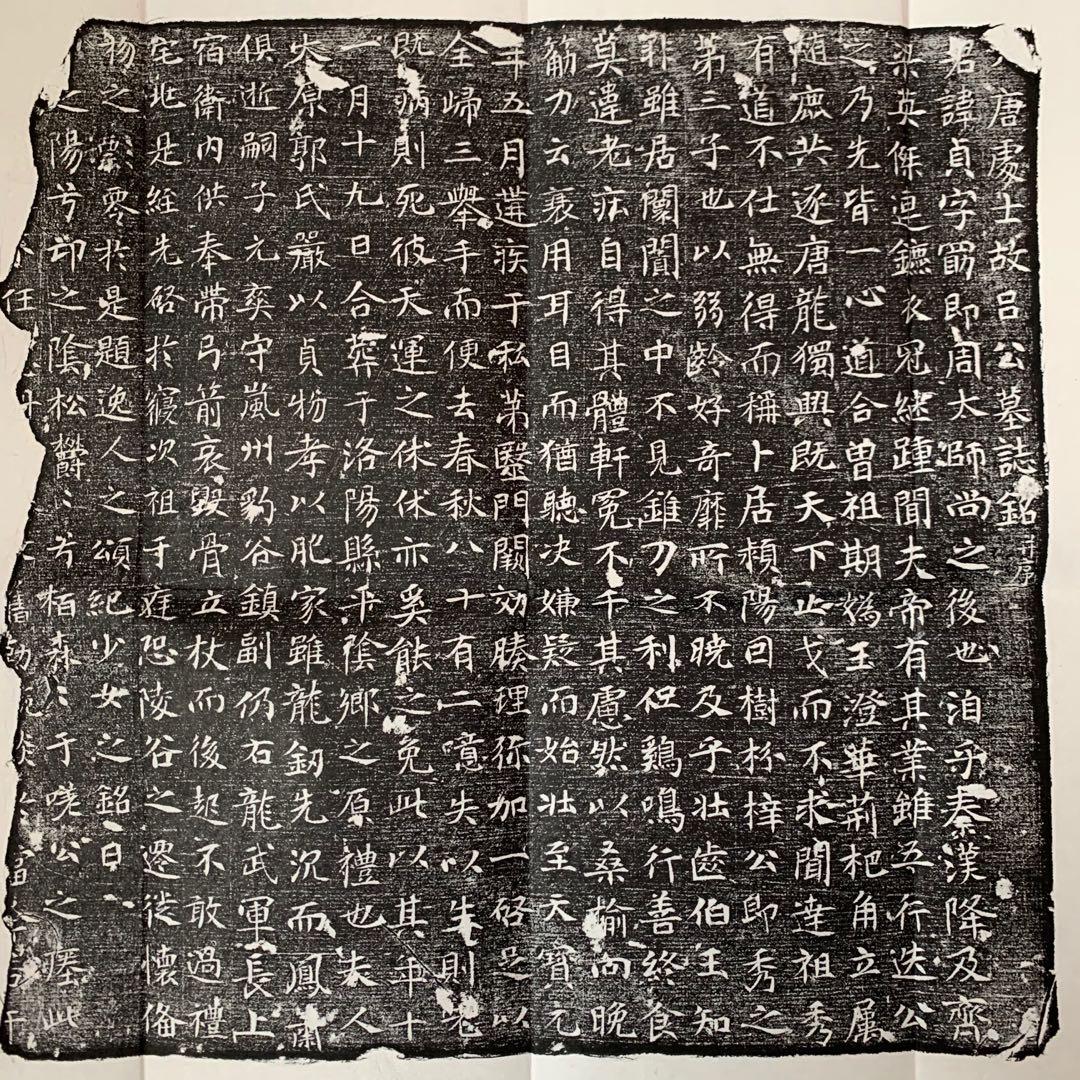 唐處士故呂公墓誌銘并序
君諱貞字罰即周大師尚之後也洎乎秦漢降及齊
梁英傑迴鑣衣冠継踵聞夫帝有其業雖五行迭公
之乃先皆一心道合曽祖期嬀王澄華荊杷角立属
随鹿共逐唐龍獨興既天下止戈而不求聞達祖秀
有道不仕無得而稱卜居頛陽回樹杍梓公即秀之
第三子也以弱齡好奇靡所不曉及乎壮齒伯玉知
非雖居闤闠之中不見錐刀之利伹鷄鳴行善終食
莫違老疾自得其體軒冕不千其慮然以桑榆向晚
筋力云衰用耳目而猶聽决嫌疑而始壮至天寶元
年五月遘疾于私第毉門闕効腠理弥加一啓足以
全歸三舉手而便去春秋八十有二噫失以生則老
既病則死彼天運之休休亦奚能之免此以其年十
一月十九日合葬于洛陽縣平陰鄉之原禮也夫人
太原郭氏嚴以貞物孝以肥家雖龍釼先沉而鳳簫
俱逝嗣子元奕守嵐州豹谷鎮副仍右龍武軍長上
宿衛内供奉帶弓箭哀毀骨立杖而後起不敢過禮
宅地是絰先啓扵寢次祖于庭恐陵谷之遷徙懷俻
物之零扵是題逸人之頌紀少女之銘曰
之陽兮邙之陰松欝〻兮栢森〻于嗟公之墓此
任